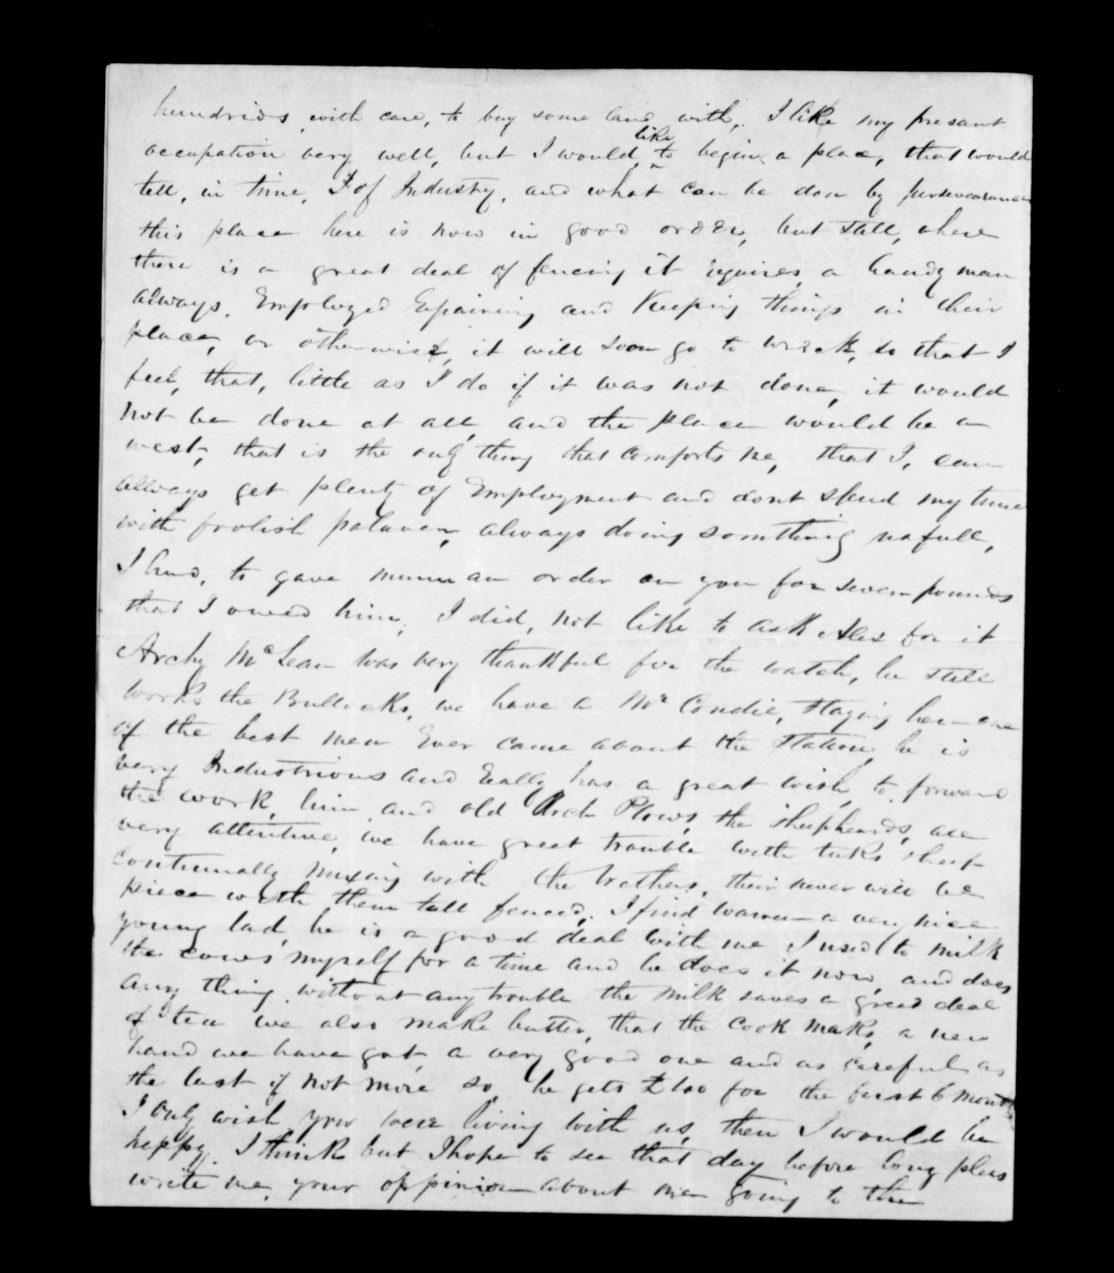 hundrids, with care, to buy some land with, I like my presant
occupation very well, but I would like to begin a place, that would
tell, in time, of Industry, and what can be don by perseverance
this place here is now in good order, but still, where
there is a great deal of fencing it requires, a handy man
always. Employed Repairing and Keeping things in their
place, or otherwise, it will soon go to wreck, so that I
feel, that, little as I do if it was not done, it would
not be done at all, and the place would be a
west, that is the only thing that comforts me, that I, can
allways get plenty of Employment and dont spend my time
with foolish palaver, always doing something usfull,
I had, to gave an order on you for seven pounds
that I owed him, I did, not like to ask Alex for it
Archy McLean was very thankful for the watch, he still
works the Bullocks, we have a Mr Condie, staying here one
of the best men Ever came about the station, he is
very Industrious and Really has a great wish to forward
the work, him and old Arch Plows, the sheepheards, are
very attentive, we have great trouble with sheep
continually mixing with the brothers, their never will be
piece with them till fenced. I find a very nice
young lad, he is a good deal with me I used to milk
the cows myself for a time and he does it now, and does
any thing without any trouble the milk saves a great deal
of tea we also make butter, that the Cook maks, a new
hand we have got a very good one and as careful as
the last if not more so he gets £100 for the first 6 months
I only wish you were living with us, then I would be
happy. I think but I hope to see that day before long plus
write me, your oppinion about me going to the